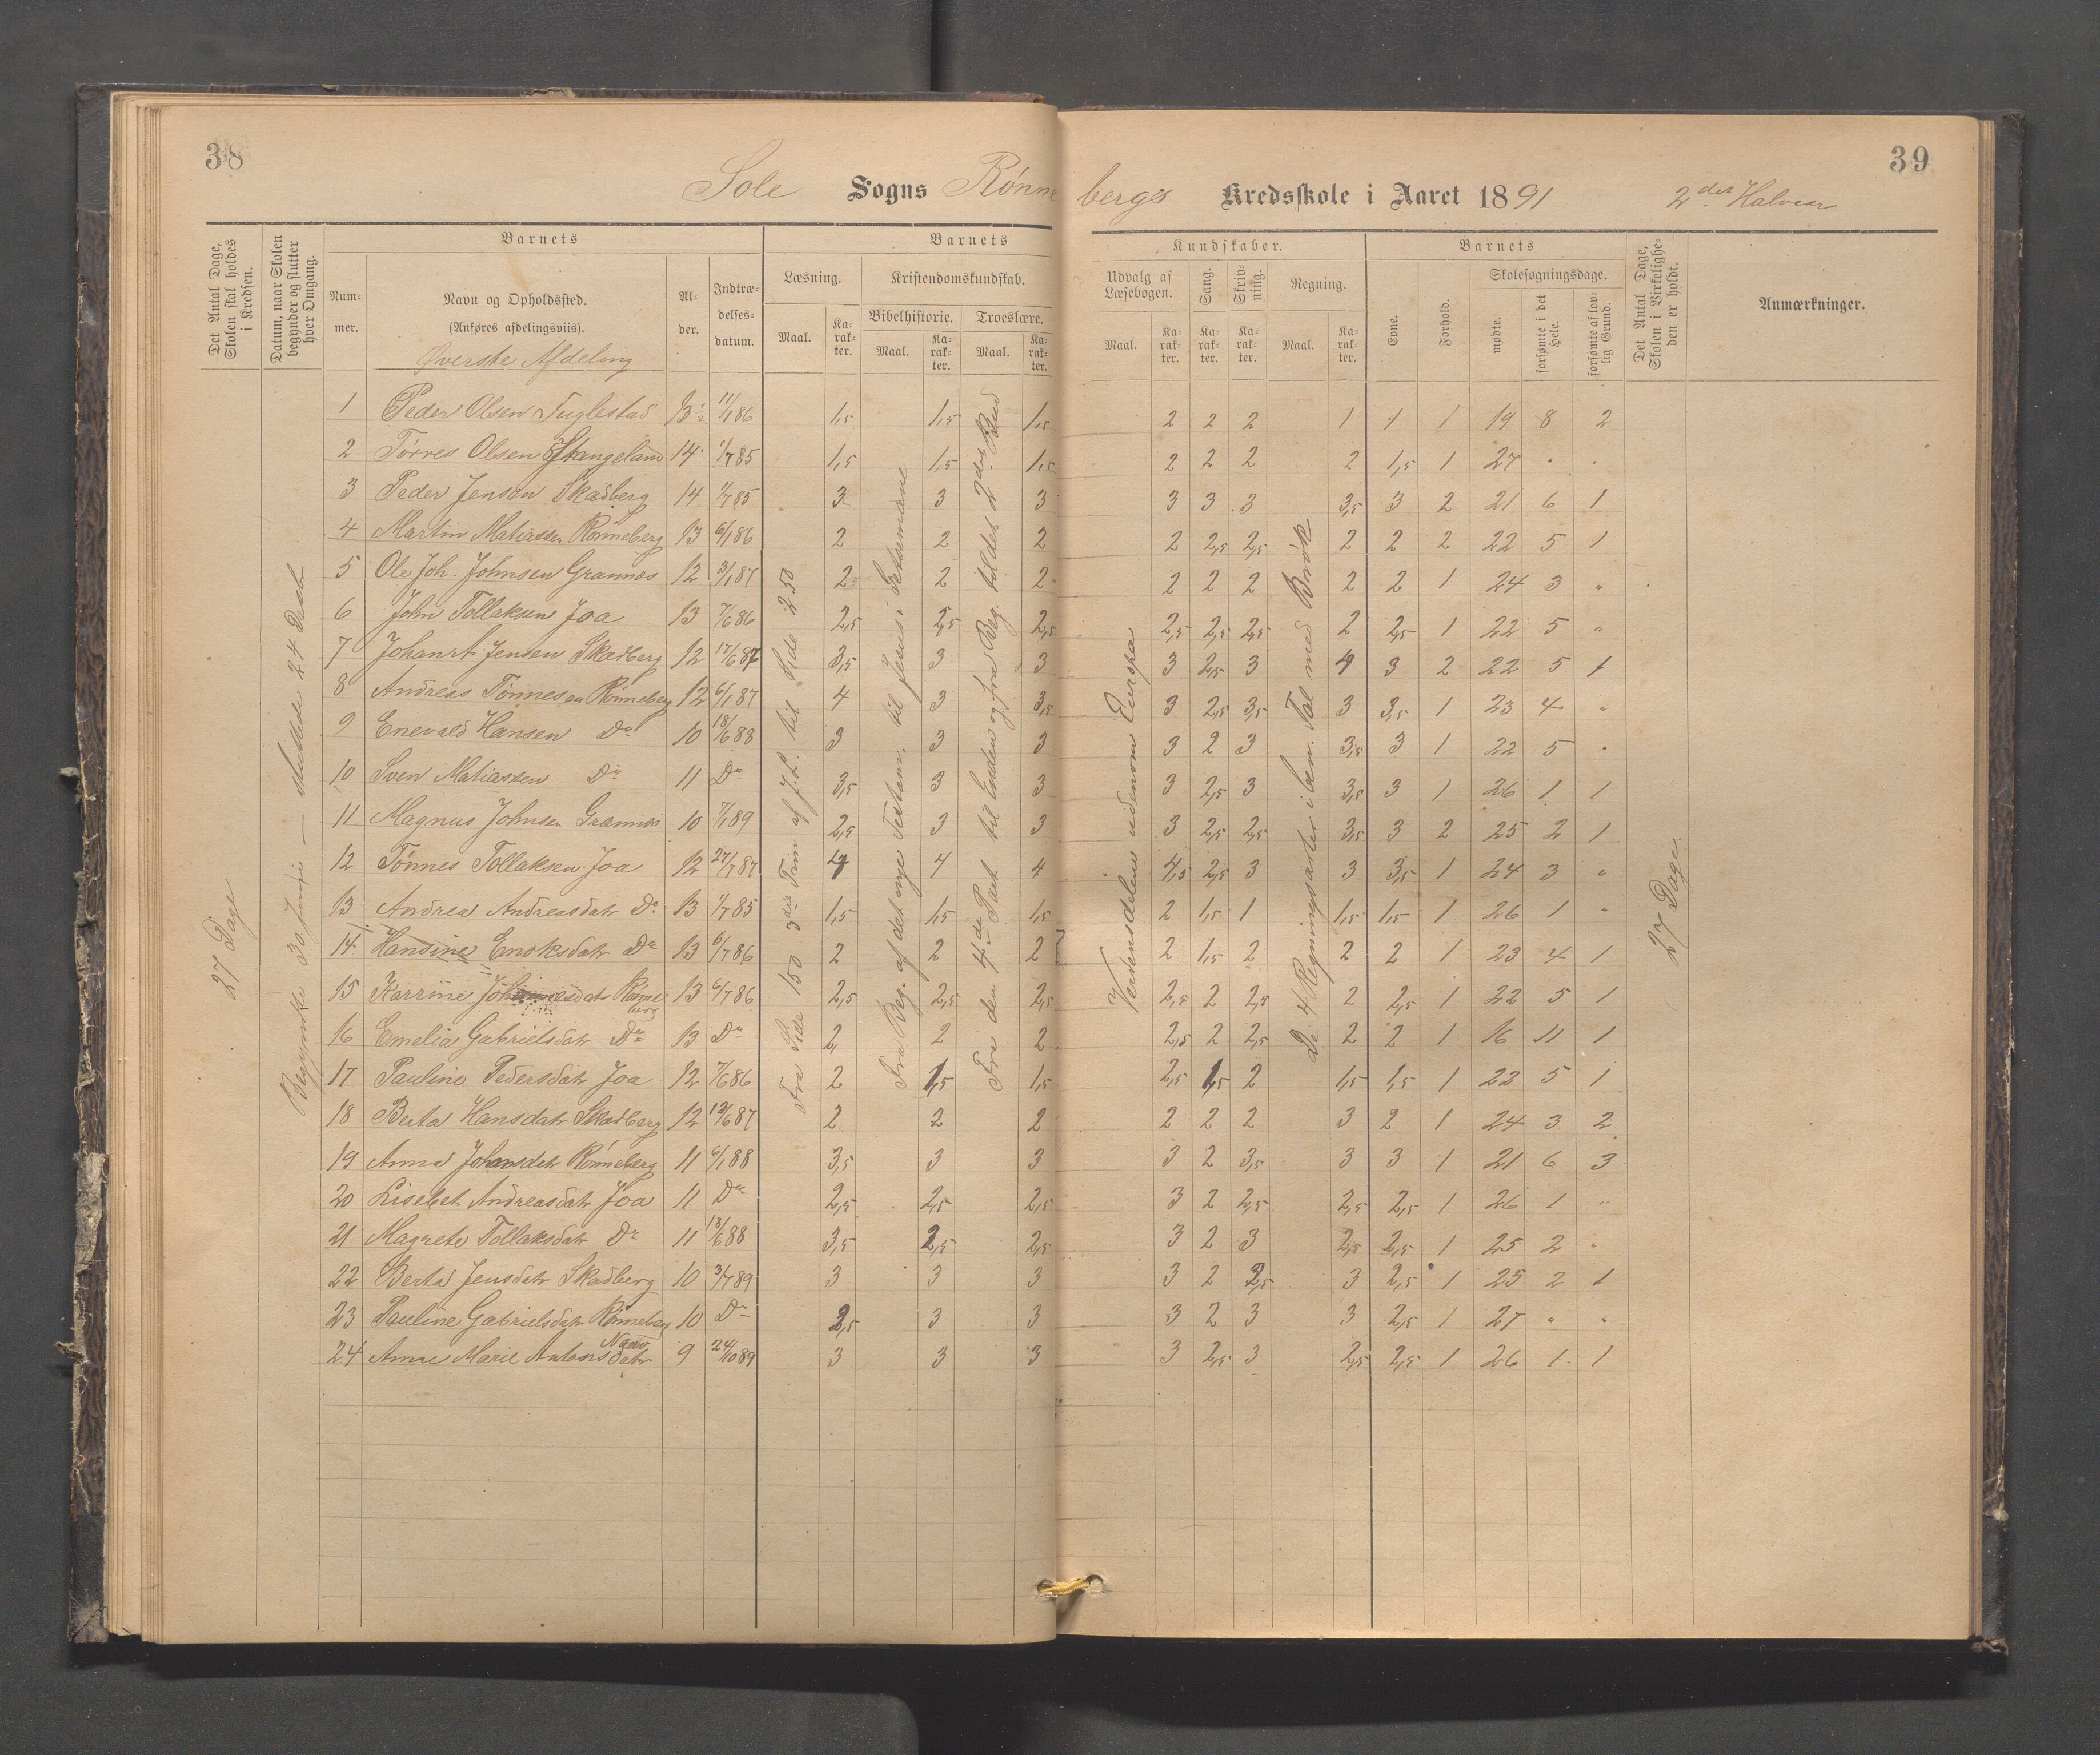 38
39
Sole Sogns Rönnebergs Kredsskole i Aaret 1891 2det Halvaar
Det Antal Dage, Skolen skal holdes i Kredsen.
Datum, naar Skolen begynder og slutter hver Omgang.
Barnets
Nummer.
Navn og Opholdssted.
(Anføres afdelingsviis).
Øverste Afdeling
Alder.
Indtrædelsesdatum.
Barnets Kundskaber.
Læsning.
Maal.
Karakter.
Kristendomskundskab.
Bibelhistorie.
Maal.
Karakter.
Troeslære.
Maal.
Karakter.
Udvalg af Læsebogen.
Maal.
Karakter.
Sang.
Karakter.
Skrivning.
Karakter.
Regning.
Maal.
Karakter.
Barnets
Evne.
Forhold.
Skolesøgningsdage.
mødte.
forsømte i det Hele.
forsømte af lovlig Grund.
Det Antal Dage, Skolen i Virkeligheden er holdt.
Anmærkninger.
27 Dage
Begyndte 30 Juni — sluttede 24 Decbr
Fra Side 150 3die Trin af J.L. til Side 250
Fra Beg. af det nye Testam. til Jesus i Getsemane
Fra den 4de Part til Enden og fra Beg. til det 2det Bud
Verdensdelene udenom Europa
De 4 Regningsarter i ben. Tal med Brøk
27 Dage
1 Peder Olsen Fuglestad 13½ 11/1 86 1,5 1,5 1,5 2 2 2 1 1 1 19 8 2
2 Törres Olsen Stangeland 14 1/7 85 1,5 1,5 1,5 2 2 2 2 1,5 1 27 . .
3 Peder Jensen Skadberg 14 1/7 85 3 3 3 3 3 3 3,5 3 2 21 6 1
4 Martin Matiassen Rönneberg 13 6/1 86 2 2 2 2 2,5 2,5 2 2 2 22 5 1
5 Ole Joh. Johnsen Grannæs 12 3/1 87 2 2 2 2 2 2 2 2 1 24 3 "
6 John Tollaksen Joa 13 7/6 86 2,5 2,5 2,5 2,5 2,5 2,5 2 2,5 1 22 5 "
7 Johan A. Jensen Skadberg 12 17/6 87 3,5 3 3 3 2,5 3 4 3 2 22 5 1
8 Andreas Tönnesen Rönneberg 12 6/1 87 4 3 3,5 3 2,5 3,5 3 3,5 1 23 4 "
9 Enevald Hansen Do 10 18/6 88 3 3 3 3 2 3 3,5 3 1 22 5 "
10 Sven Matiassen Do 11 Do 3,5 3 3 3 2,5 3 3,5 3 1 26 1 1
11 Magnus Johnsen Grannæs 10 7/1 89 2,5 3 3 3 2,5 2,5 3,5 3 2 25 2 1
12 Tönnes Tollaksen Joa 12 27/7 87 4 4 4 4,5 2,5 3 3 3,5 1 24 3 "
13 Andrea Andreasdatr Do 13 1/7 85 1,5 1,5 1,5 2 1,5 1 1,5 1,5 1 26 1 "
14 Hansine Enoksdatr Do 13 6/7 86 2 2 2 2 1,5 2 2 2 1 23 4 1
15 Karrine Johannesdatr Rönneberg 13 6/7 86 2,5 2,5 2,5 2,5 2 2,5 2 2,5 1 22 5 1
16 Emelia Gabrielsdatr Do 13 Do 2 2 2 2,5 2 2,5 2 2 1 16 11 1
17 Pauline Pedersdatr Joa 12 7/6 86 2 1,5 1,5 2,5 1,5 2 1,5 1,5 1 22 5 1
18 Berta Hansdatr Skadberg 12 13/6 87 2 2 2 2 2 2 3 2 1 24 3 2
19 Anna Johansdatr Rönneberg 11 6/1 88 3,5 3 3 3 2 3,5 3 3 1 21 6 3
20 Lisebet Andreasdatr Joa 11 Do 2,5 2,5 2,5 3 2 2,5 2,5 2,5 1 26 1 "
21 Magrete Tollaksdatr Do 11 18/6 88 3,5 2,5 2,5 3 2 3 2,5 2,5 1 25 2 "
22 Berta Jensdatr Skadberg 10 3/7 89 3 3 3 3 2 2,5 3 2,5 1 25 2 1
23 Pauline Gabrielsdatr Rönneberg 10 Do 2,5 3 3 3 2 3 3 2,5 1 27 " "
24 Anne Marie Antonsdatr 9 24/10 89 3 3 3 3 2,5 3 2,5 2,5 1 26 1 1